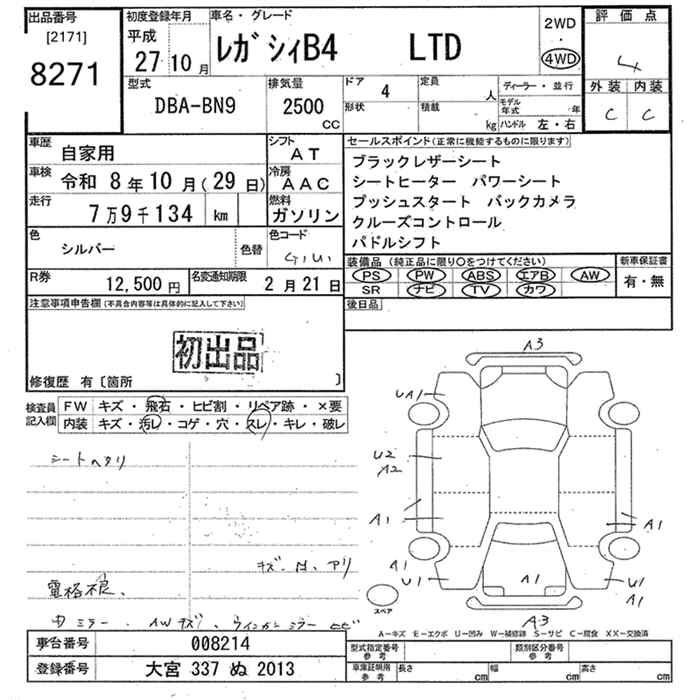 出品番号
[2171]
8271
初度登録年月
平成
27 10 月
車名・グレード
ﾚｶﾞｼｨB4 LTD
2WD
・
4WD
評価点
4
外装 内装
C C
型式
DBA-BN9
排気量
2500
CC
ドア 4
形状
定員 人
積載 kg
ディーラー・並行
モデル年式 年
ハンドル 左・右
車歴 自家用
シフト AT
車検 令和 8年10月(29日)
冷房 AAC
走行 7万9千134 km
燃料 ガソリン
色 シルバー
色替
色コード
G1U
R券 12,500 円
名変通知期限 2月21日
セールスポイント(正常に機能するものに限ります)
ブラックレザーシート
シートヒーター パワーシート
プッシュスタート バックカメラ
クルーズコントロール
パドルシフト
装備品 (純正品に限り○をつけてください)
PS PW ABS エアB AW
SR ナビ TV カワ
新車保証書
有・無
後日品
注意事項申告欄(不具合内容等は具体的に記入して下さい)
初出品
修復歴 有〔箇所 〕
検査員記入欄
FW キズ・飛石・ヒビ割・リペア跡・×要
内装 キズ・汚レ・コゲ・穴・スレ・キレ・破レ
シートヘタリ
キズ、凹、アリ
電格不良、
中ミラー、AWキズ、ウインカーミラーヒビ
A3
UA1
U2
A2
A1
A1
A1
U1
A1
U1
A1
スペア
A3
A−キズ E−エクボ U−凹み W−補修跡 S−サビ C−腐食 XX−交換済
車台番号 008214
登録番号 大宮 337 ぬ 2013
型式指定番号
参考
類別区分番号
参考
車庫証明用
参考
長さ cm 幅 cm 高さ cm